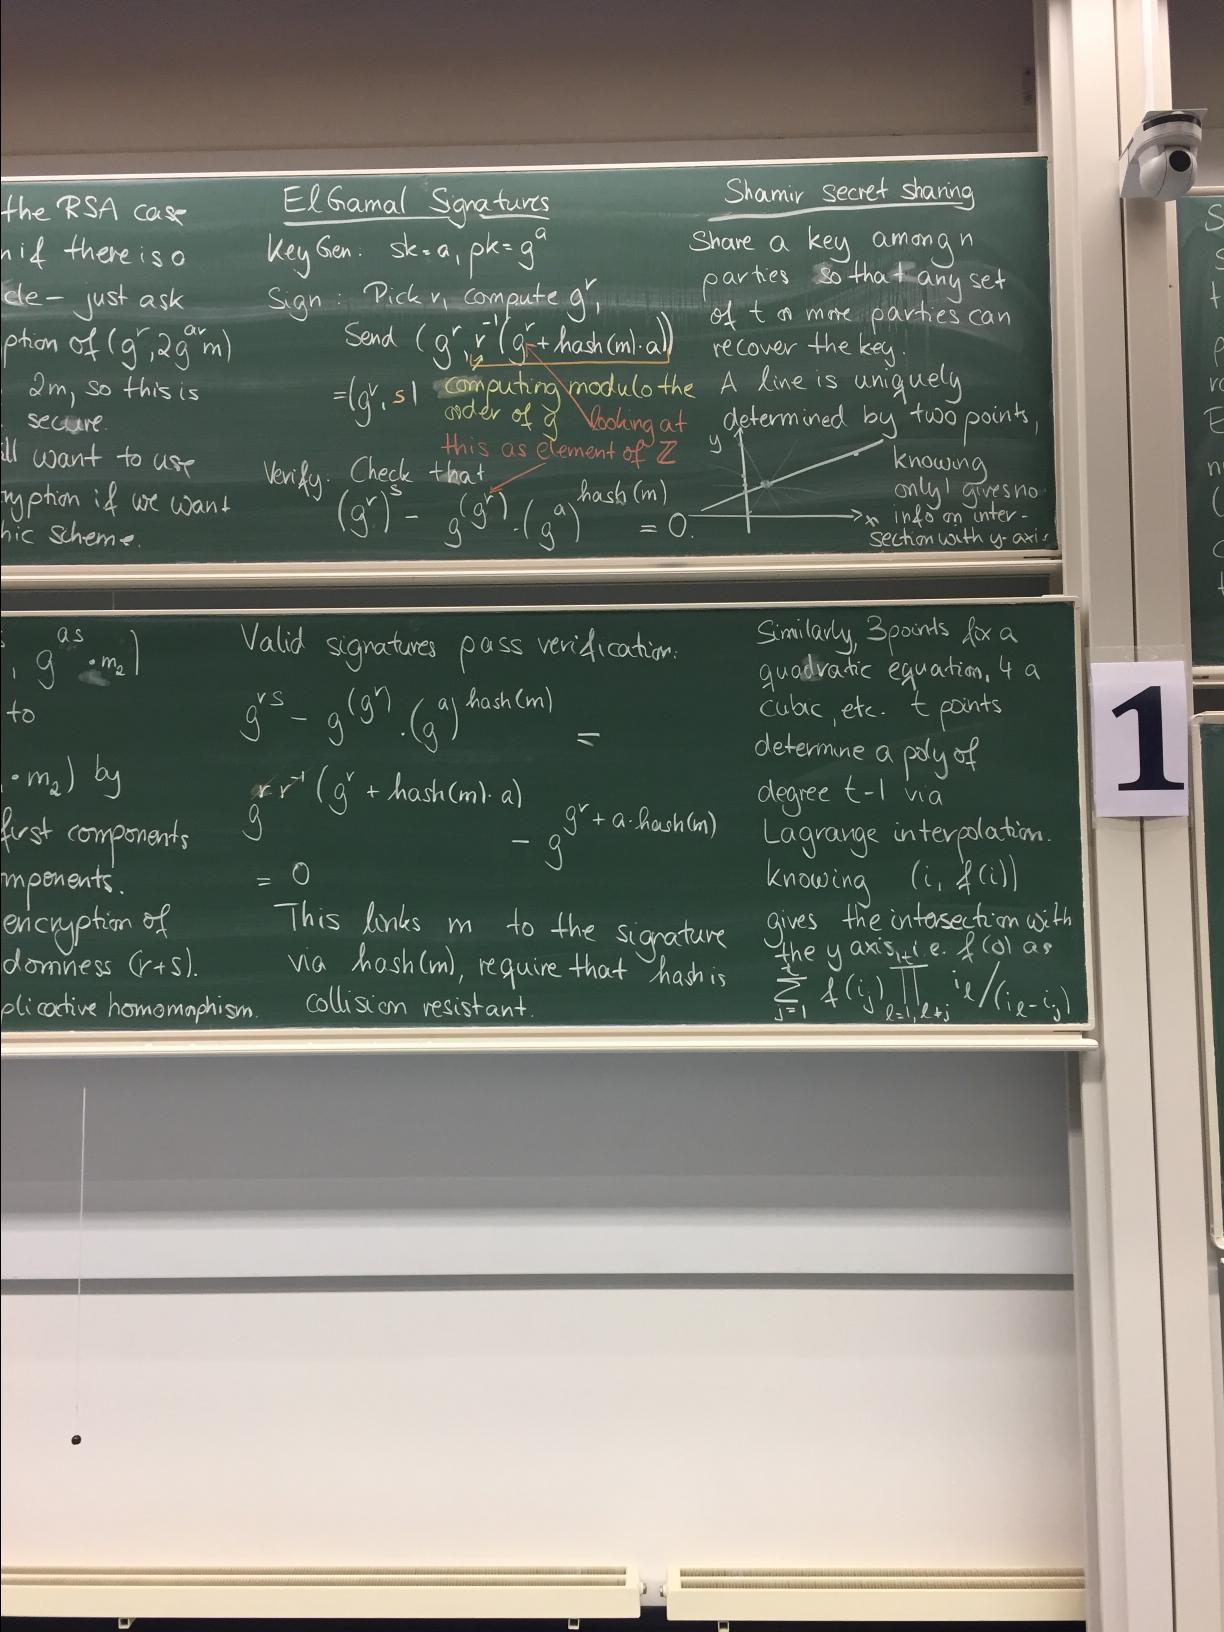 the RSA case
if there is o
cle - just ask
ption of (g^r, 2g^{ar}m)
2m, so this is
secure.
ll want to use
ryption if we want
hic scheme.
, g^{as} · m₂)
to
· m₂) by
first components
mponents.
encryption of
domness (r+s).
plicative homomorphism.
ElGamal Signatures
KeyGen: sk=a, pk=g^a
Sign: Pick r, compute g^r,
Send (g^r, r^{-1}(g^r + hash(m)·a))
=(g^r, s)
computing modulo the
order of g
looking at
this as element of ℤ
Verify: Check that
(g^r)^s - g^{(g^r)} · (g^a)^{hash(m)} = 0.
Valid signatures pass verification:
g^{rs} - g^{(g^r)} · (g^a)^{hash(m)} =
g^{r r^{-1}(g^r + hash(m)·a)} - g^{g^r + a·hash(m)}
= 0
This links m to the signature
via hash(m), require that hash is
collision resistant.
Shamir secret sharing
Share a key among n
parties so that any set
of t or more parties can
recover the key.
A line is uniquely
determined by two points,
y
x
knowing
only 1 gives no
info on inter-
section with y-axis
Similarly, 3 points fix a
quadratic equation, 4 a
cubic, etc. t points
determine a poly of
degree t-1 via
Lagrange interpolation.
knowing (i, f(i))
gives the intersection with
the y axis, i.e. f(0) as
∑_{j=1}^{t} f(i_j) ∏_{l=1, l≠j}^{t} i_l/(i_l - i_j)
1